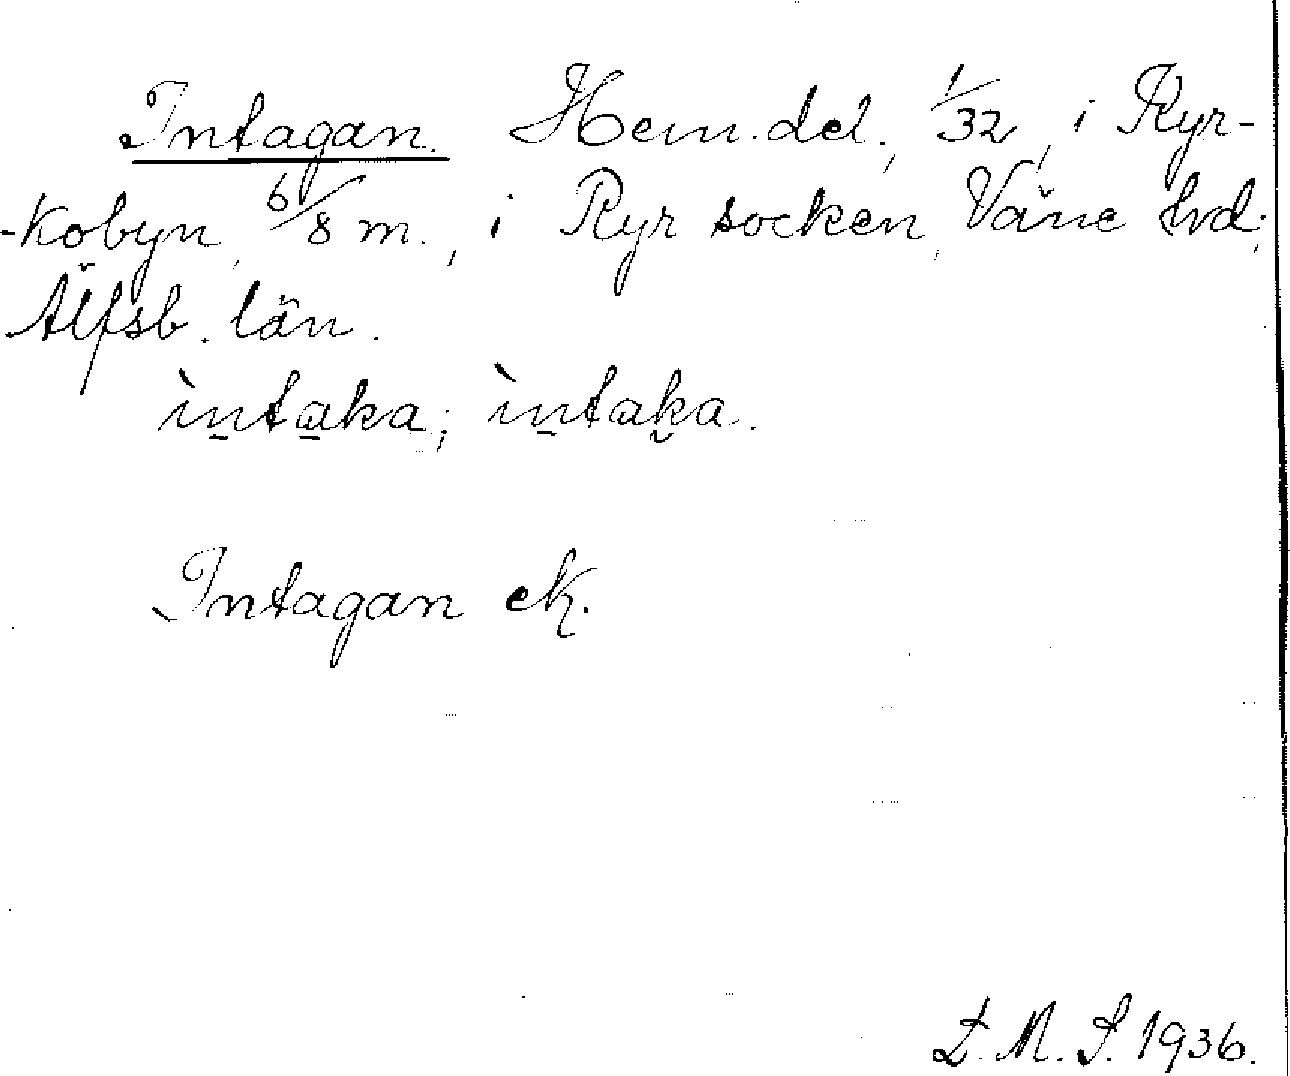 Intagan. Hem.del., 1/32, i Ryr-
-Kobyn, 6/8 m., i Ryr socken, Väne hvd;
Älfsb. län.
ìntaka; ìntaka.
Intagan ek.
D. M. S. 1936.